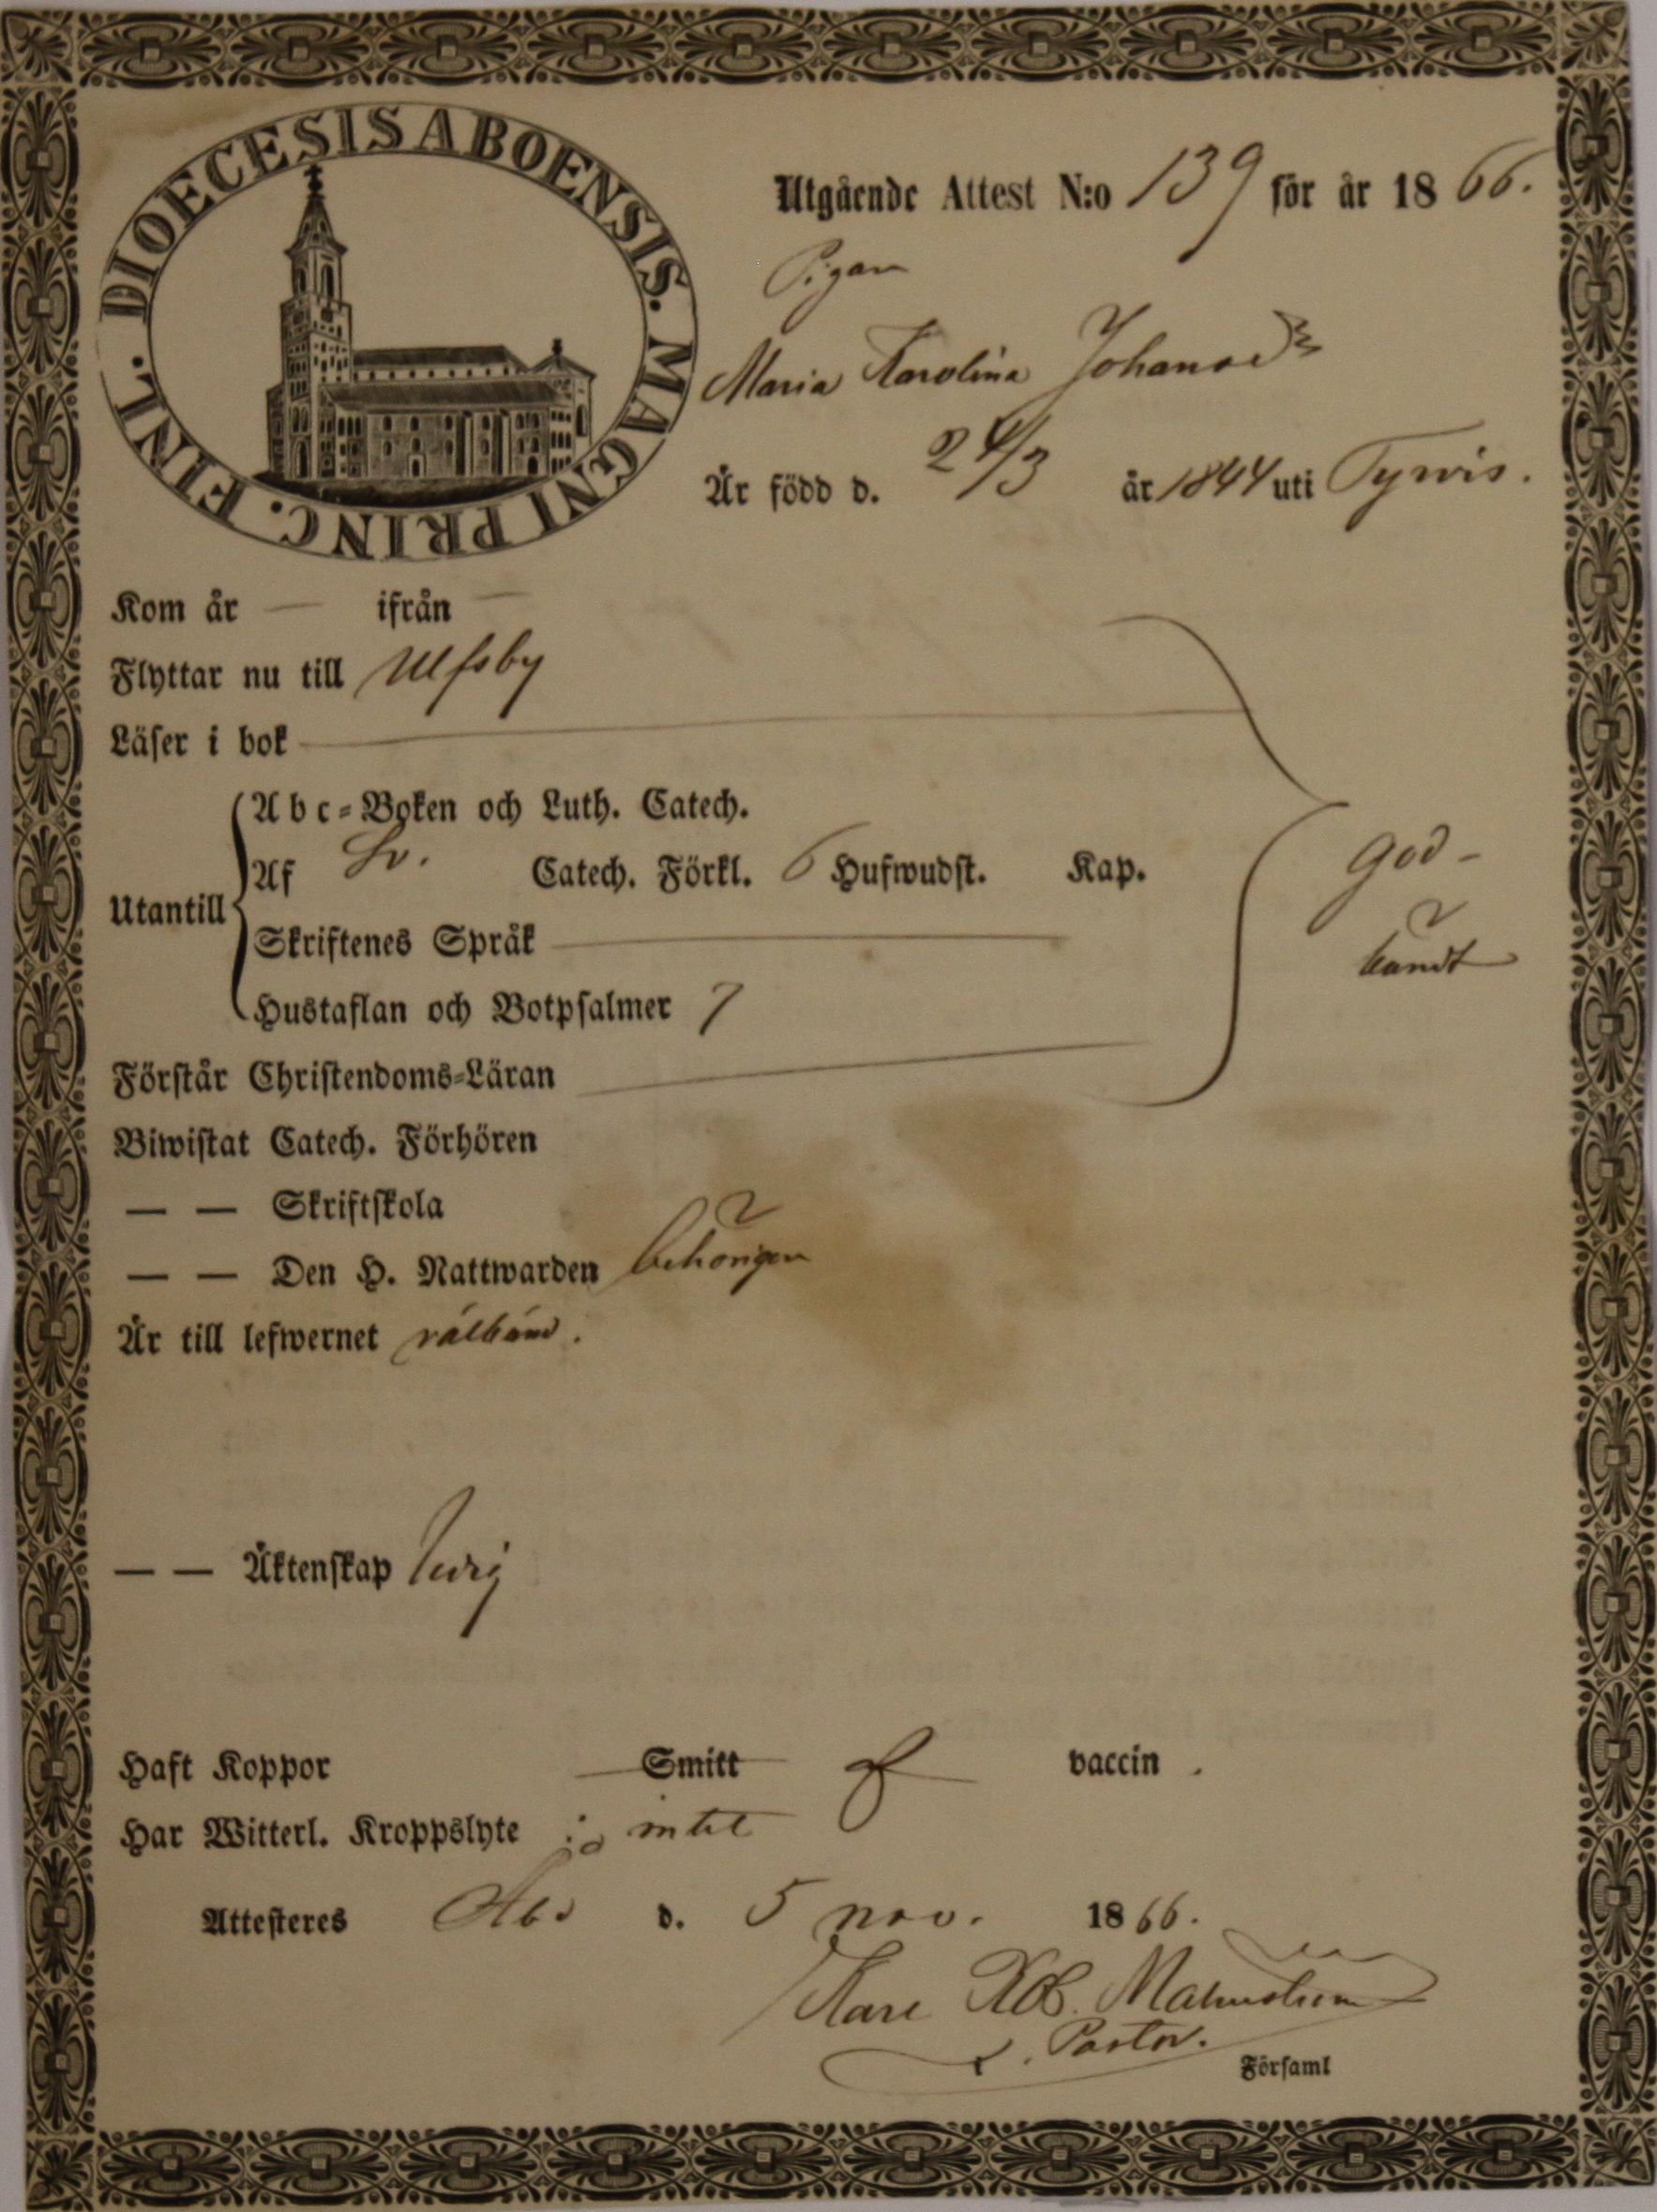 DIOECESIS ABOENSIS. MAGNI PRINC. FINL.
Utgående Attest N:o 139 för år 1866.
Pigan
Maria Karolina Johansd:r
Är född d. 24/3 år 1844 uti Tyrvis.
Kom år — ifrån —
Flyttar nu till Ulfsby
Läser i bok
Abc-Boken och Luth. Catech.
Af Sv. Catech. Förkl. 6 Hufwudst. Kap.
Utantill
Skriftenes Språk
Hustaflan och Botpsalmer 7
Förstår Christendoms-Läran
god-
kändt
Biwistat Catech. Förhören
— — Skriftskola
— — Den H. Nattwarden behörigen
Är till lefwernet välkänd.
— — Äktenskap ledig
Haft Koppor Smitt af vaccin.
Har Witterl. Kroppslyte intet
Attesteres Åbo d. 5 nov. 1866.
Karl Rob. Malmström
Pastor.
Församl